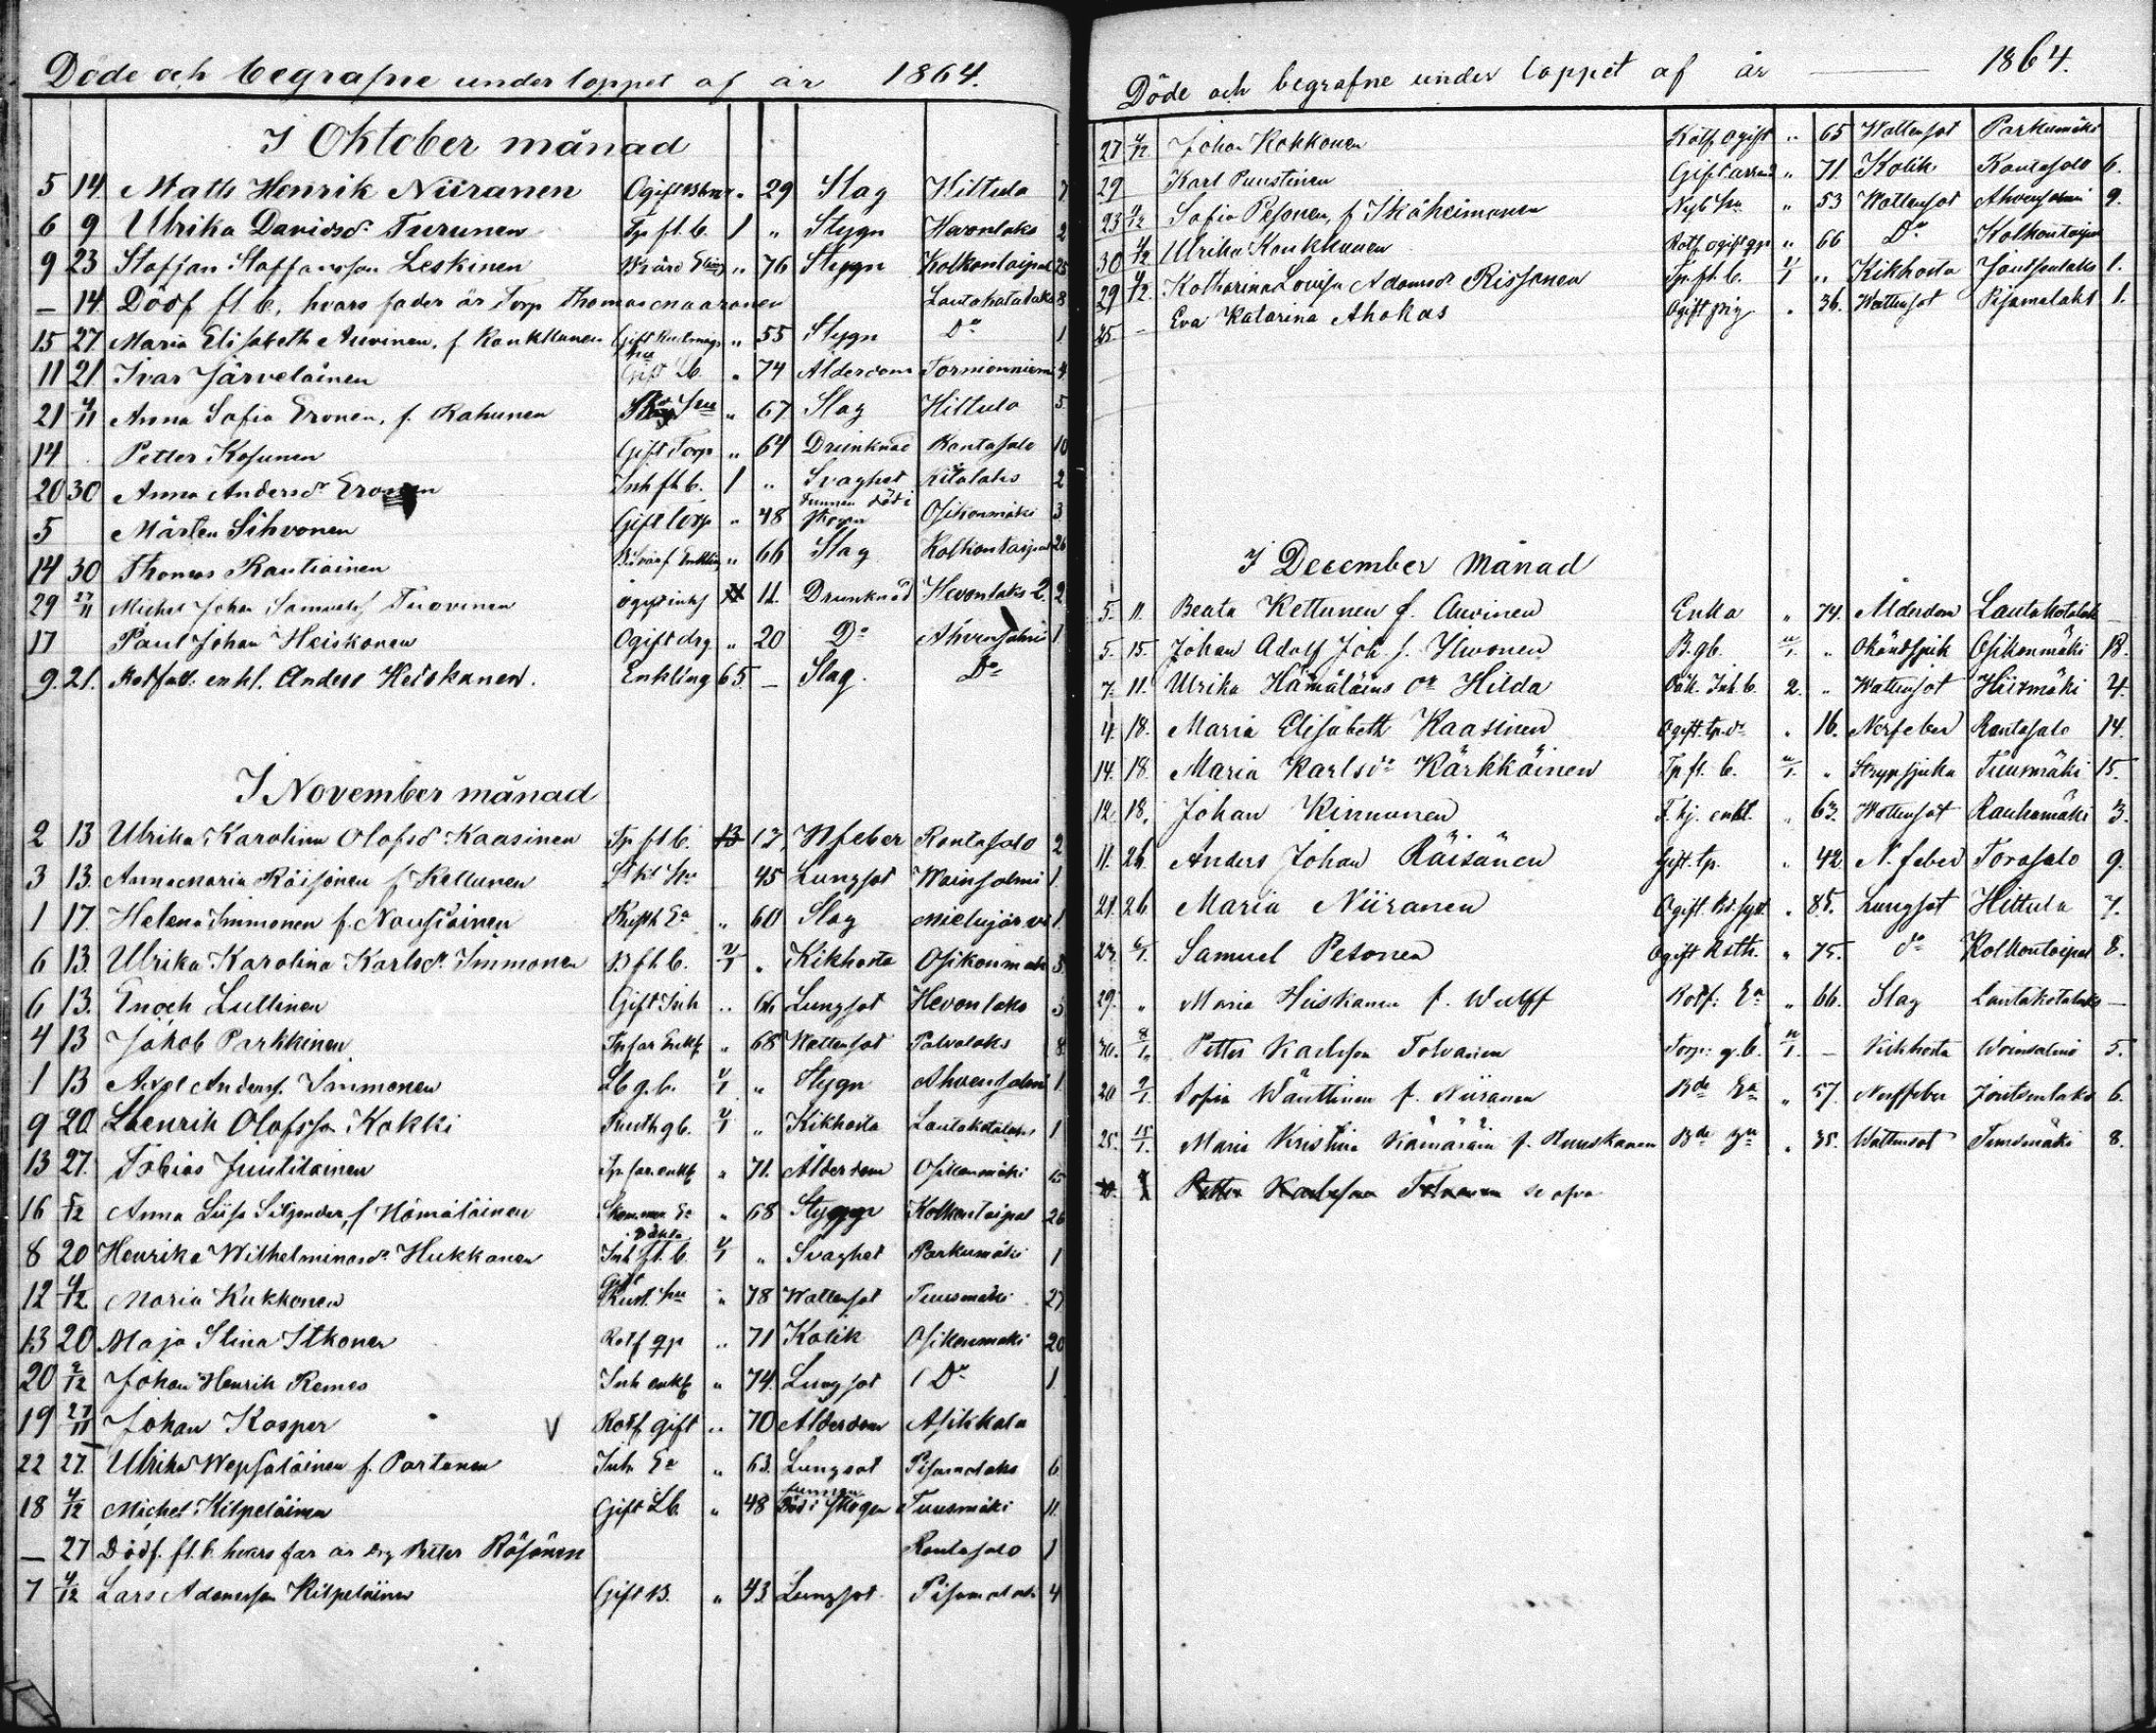 Döde och begrafne under loppet af år 1864.
I Oktober månad
5 14. Matts Henrik Niiranen Ogift " 29 Slag Hiltula 7
6 9 Ulrika Davidsdr Turunen Tp fl. b. 1 " Stygn Hevonlaks 2
9 23 Staffan Staffansson Leskinen " 76 Stygn Kolkontaipal 25
– 14. Dödf fl. b, hvars fader är Torp Thomas Lautakotalaks 8
15 27. Maria Elisabeth Auvinen, f Kaukkunen Gift " 55 Stygn Do 1
11 21 Ivar Järveläinen Gift Lb. " 74 Ålderdom Tornionniemi 4
21 4/11 Anna Sofia Eronen, f. Rahunen hu " 67 Slag Hiltula 5
14 Petter Kosunen Gift Torp " 64 Drunknad Rantasalo 10
20 30 Anna Andersdr Eronen Inh fl b. 1 " Svaghet Kitalaks 2
5 Mårten Sihvonen Gift torp " 48 Funnen död i skogen Osikonmäki 3
14 30 Thomas Rautiainen " 66 Slag Kolkontaipal 26
29 27/11 Michel Johan Samuelsf Tuovinen Ogift inhs 11. Drunknad Hevonlaks 2. 2
17 Paul Johan Heiskanen Ogift drg " 20 Do Ahvensalmi 1
9. 21. Rotfat: enkl. Anders Heiskanen. Enkling 65. – Slag. Do
I November månad
2 13 Ulrika Karolina Olofsdr Kaasinen Tp fl b. 13 Nfeber Rantasalo 2
3 13. Anna Maria Räisänen f Kettunen hu 45 Lungsot Wainsalmi 1
1 17. Helena Immonen f. Nousiainen Ea " 60 Slag 1
6 13. Ulrika Karolina Karlsdr Immonen B fl b. " Kikhosta Osikonmäki 8.
6 13. Enoch Luttinen Gift Inh " 66 Lungsot Hevonlaks 5
4 13 Jakob Parkkinen " 68 Wattensot Palvalaks 8
1 13 Axel Andersf. Immonen Lb g. b. " Stygn Ahvensalmi 1.
9 20. Henrik Olofsson Kokki g b. " Kikhosta Lautakotalaks 1
13 27. Tobias Juutilainen Tp far. enkl " 71. Ålderdom Osikonmäki 15
16 5/12 Anna Liisa Siljander, f Hämäläinen " 68 Stygn Kolkontaipal 26
8 20 Henrika Wilhelminasdr Hukkanen Inh fl. b. " Svaghet Parkumäki 1
12 4/12 Maria Kukkonen Gift hu " 78 Wattensot Tuusmäki 27
13 20 Maja Stina Itkonen Rotf " 71 Kolik Osikonmäki 20
20 2/12 Johan Henrik Remes Inh enkl " 74. Lungsot Do 1
19 27/11 Johan Kasper V Rotf gift " 70 Ålderdom Asikkala
22 27. Ulrika Wepsäläinen f. Partanen Inh Ea " 63. Lungsot Pisamalaks 6
18 4/12 Michel Kilpeläinen Gift Lb. " 48 funnen Död i skogen Tuusmäki 11.
– 27 Dödf. fl. b hvars far är drg Petter Räsänen Rantasalo 1
7 4/12 Lars Adamsson Kilpeläinen Gift B. " 43. Lungsot Pisamalaks 4
Döde och begrafne under loppet af år 1864.
27 4/12. Johan Kokkonen Rotf ogift " 65 Wattensot Parkumäki
29 Karl Puustinen Gift " 71. Kolik Rantasalo 6.
23 4/12 Sofia Pesonen, f Ikäheimonen Nyb hu " 53 Wattensot Ahvensalmi 9.
30 4/12. Ulrika Kaukkunen Rotf ogift " 66 Do Kolkontaipal
29 4/12. Katharina Lovisa Adamsdr Rissanen Tp. fl. b. " Kikhosta Joutsenlaks 1.
25 – Eva Katarina Ahokas Ogift pig " 36. Wattensot Pisamalaks 1.
I December månad
5. 11. Beata Kettunen f. Auvinen Enka " 74. Ålderdom Lautakotalaks –
5. 15. Johan Adolf Joh. s. Ylivonen B. gb. " Okänd sjuk Osikonmäki 18.
7. 11. Ulrika Hämäläins Oä Hilda Oäk. Inh. b. 2. " Wattensot Hiismäki 4.
4. 18. Maria Elisabeth Kaasinen Ogift. tp. dr " 16. Nerffeber Rantasalo 14.
14. 18. Maria Karlsdr Kärkkäinen Tp fl. b. " Strypsjuka Tuusmäki 15.
12. 18. Johan Kinnunen enkl. " 63. Wattensot Rauhamäki 3.
11. 26. Anders Johan Räisänen Gift. tp. " 42. N. feber Torasalo 9.
21. 26. Maria Niiranen Ogift. " 85. Lungsot Hiltula 7.
27. 6/1. Samuel Pesonen Ogift " 75. do Kolkontaipal 8.
29. " Maria Heiskanen f. Wulff Rotf: Ea " 66. Slag Lautakotalaks –
30. 8/1. Petter Karlsson Tolvanen Torp: g. b. – Kikhosta Woinsalmi 5.
20 9/1. Sofia Wänttinen f. Niiranen Bde Ea " 57. Nerffeber Joutsenlaks 6.
25. 15/1. Maria Kristina Kämäräin f. Ruuskanen Bde " 35. Wattensot Tuusmäki 8.
Petter Karlsson Tolvanen se ofvan